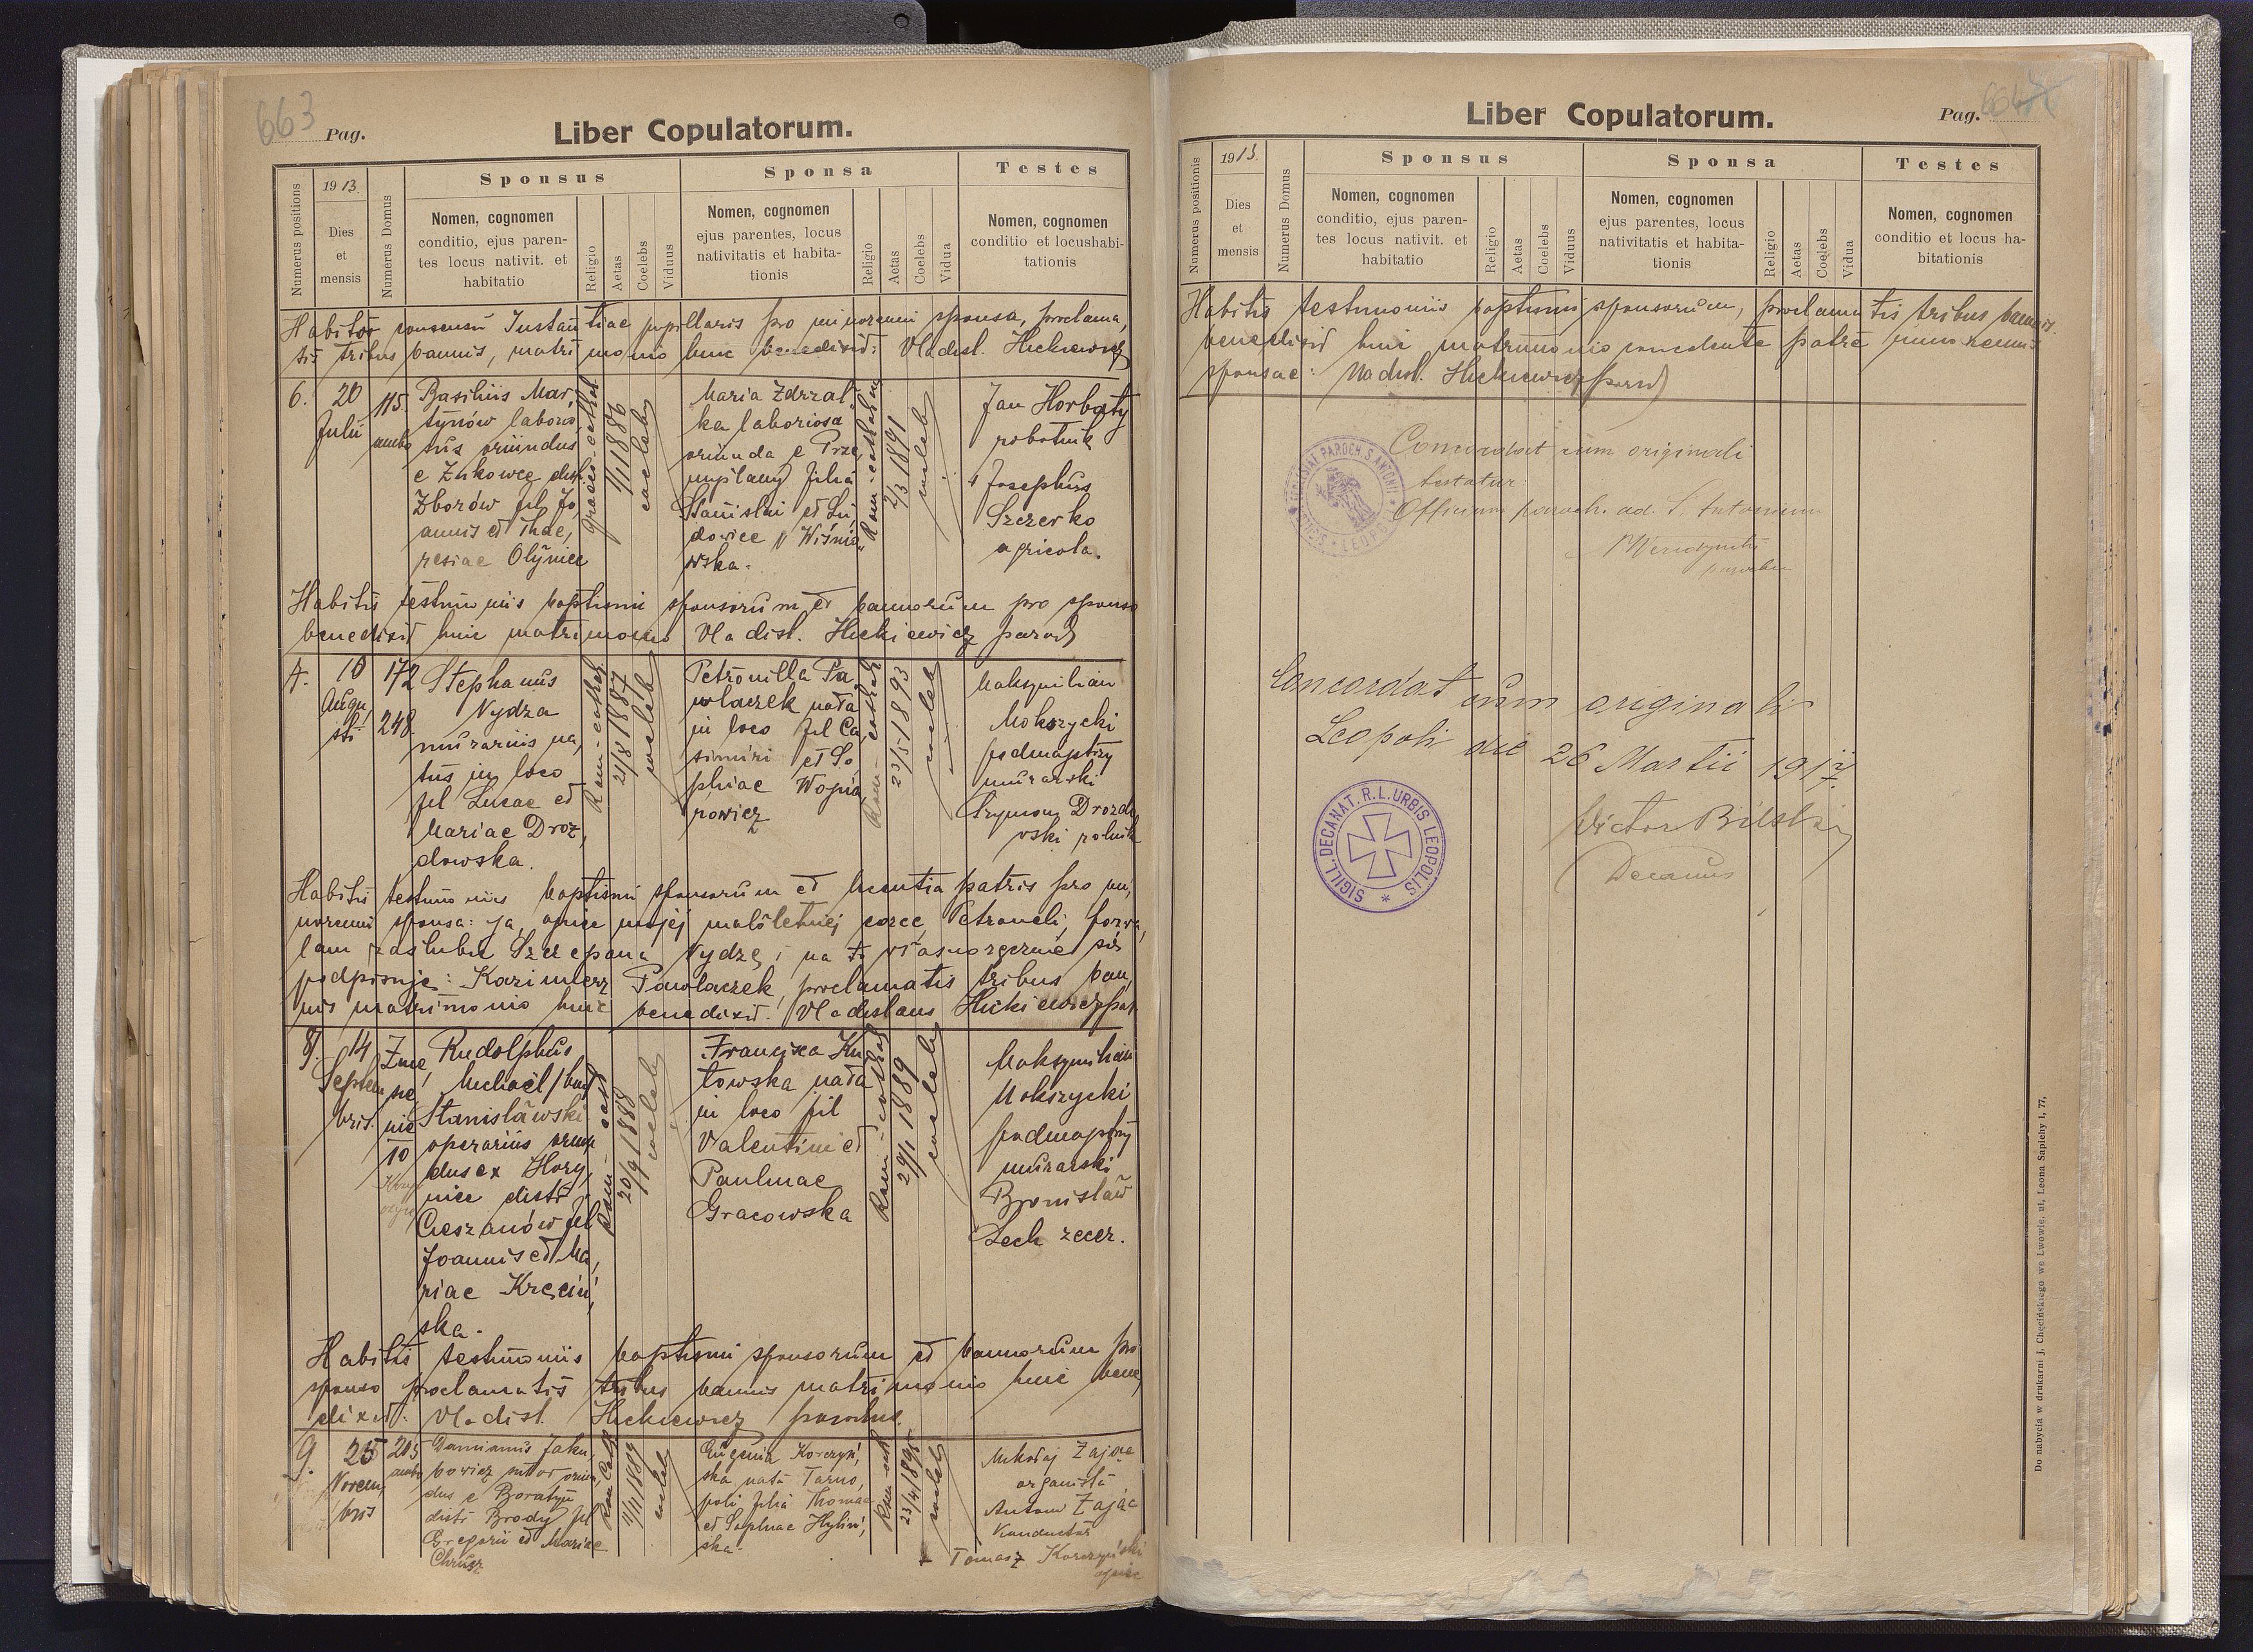 663 Pag.
Liber Copulatorum.
Numerus positionis
1913.
Dies
et
mensis
Numerus Domus
Sponsus
Nomen, cognomen
conditio, ejus paren-
tes locus nativit. et
habitatio
Religio
Aetas
Coelebs
Viduus
Sponsa
Nomen, cognomen
ejus parentes, locus
nativitatis et habita-
tionis
Religio
Aetas
Coelebs
Vidua
Testes
Nomen, cognomen
conditio et locushabi-
tationis
Habito consensu Instantiae pupillaris pro minorenni sponsa, proclama,
tis tribus bannis, matrimonio huic benedixit: Vladisl. Hickiewicz
6.
20
Julii
115.
ambo
Basilius Mar,
tynów laborio
sus oriundus
e Zukowce distr.
Zborów fil Jo,
annis et The,
resiae Olÿnice
graeco-cathol.
1/1 1886
coelebs
Maria Zdrzał
ka laboriosa
oriunda e Prze,
myślany filia
Stanislai et Lu,
dovice Wiśnio
wska.
Rom-cathol
2/3 1891
coelebs
Jan Horbaty
robotnik
Josephus
Szczerko
agricola.
Habitis testimoniis baptismi sponsorum et bannorum pro sponso
benedixit huic matrimonio Vladisl. Hickiewicz paroch
7.
10
Augu,
sti
172
248.
Stephanus
Nydza
murarius na,
tus in loco
fil Lucae et
Mariae Droz,
dowska.
Rom-cathol.
21/8 1887
coelebs
Petronilla Pa,
wlaczek nata
in loco fil Ca,
simiri et So
phiae Wojna
rowicz
Rom-cathol
23/5 1893
coelebs
Maksymilian
Mokrzycki
podmajstrzy
murarski
Szymon Drozdo
wski rolnik
Habitis testimoniis baptismi sponsorum et licentia patris pro mi,
norenni sponsa: Ja, ojciec mojej małoletniej corce, Petroneli, pozwa,
lam zaślubić Szczepana Nydzę i na to własnoręcznie się
podpisuję: Kazimierz Pawlaczek, proclamatis tribus ban,
nis matrimonio huic benedixit. Vladislaus Hickiewicz par.
8.
14
Septem
bris.
Zme,
sie,
nie
10
Rudolphus
Michaël
Stanisławski
operarius oriun,
dus ex Hory,
niec distr
Cieszanów fil
Joannis et Ma,
riae Kręciń,
ska.
Rom-cat
20/9 1888
coelebs
Francisca Ku
towska nata
in loco fil
Valentini et
Paulinae
Gracowska
Rom-cathol
29/1 1889
coelebs
Maksymilian
Mokrzycki
podmajstrzy
murarski
Bronisław
Lech zecer.
Habitis testimoniis baptismi sponsorum et bannorum pro
sponso proclamatis tribus bannis matrimonio huic bene,
dixit: Vladisl. Hickiewicz parochus.
9.
25
Novem,
bris
205
ambo
Damianus Jaku,
bowicz sutor oriun,
dus e Boratyn
distr Brody fil
Gregorii et Mariae
Chrusz
Rom Cath
1/11 1889
coeleb
Eugenia Korczyń,
ska nata Tarno,
poli filia Thomae
et Sophiae Hylin,
ska.
Rom cath
23/4 1895
coelebs
Mikołaj Zając
organista
Antoni Zając
konduktor
+ Tomasz Korczyński
ojciec
Liber Copulatorum.
Pag.
Numerus positionis
1913.
Dies
et
mensis
Numerus Domus
Sponsus
Nomen, cognomen
conditio, ejus paren-
tes locus nativit. et
habitatio
Religio
Aetas
Coelebs
Viduus
Sponsa
Nomen, cognomen
ejus parentes, locus
nativitatis et habita-
tionis
Religio
Aetas
Coelebs
Vidua
Testes
Nomen, cognomen
conditio et locus ha-
bitationis
Habitis testimoniis baptismi sponsorum, proclamatis tribus bannis.
benedixit huic matrimonio concedente patre minorennis
sponsae: Vladisl. Hickiewicz paroch
Concordat cum originali
testatur:
Officium paroch. ad S. Antonium
Concordat cum originali
Leopoli die 26 Martii 1917.
SIGILL. DECANAT. R. L. URBIS LEOPOLIS
Victor Bilski
Decanus
Do nabycia w drukarni J. Chęcińskiego we Lwowie, ul. Leona Sapiehy l. 77.